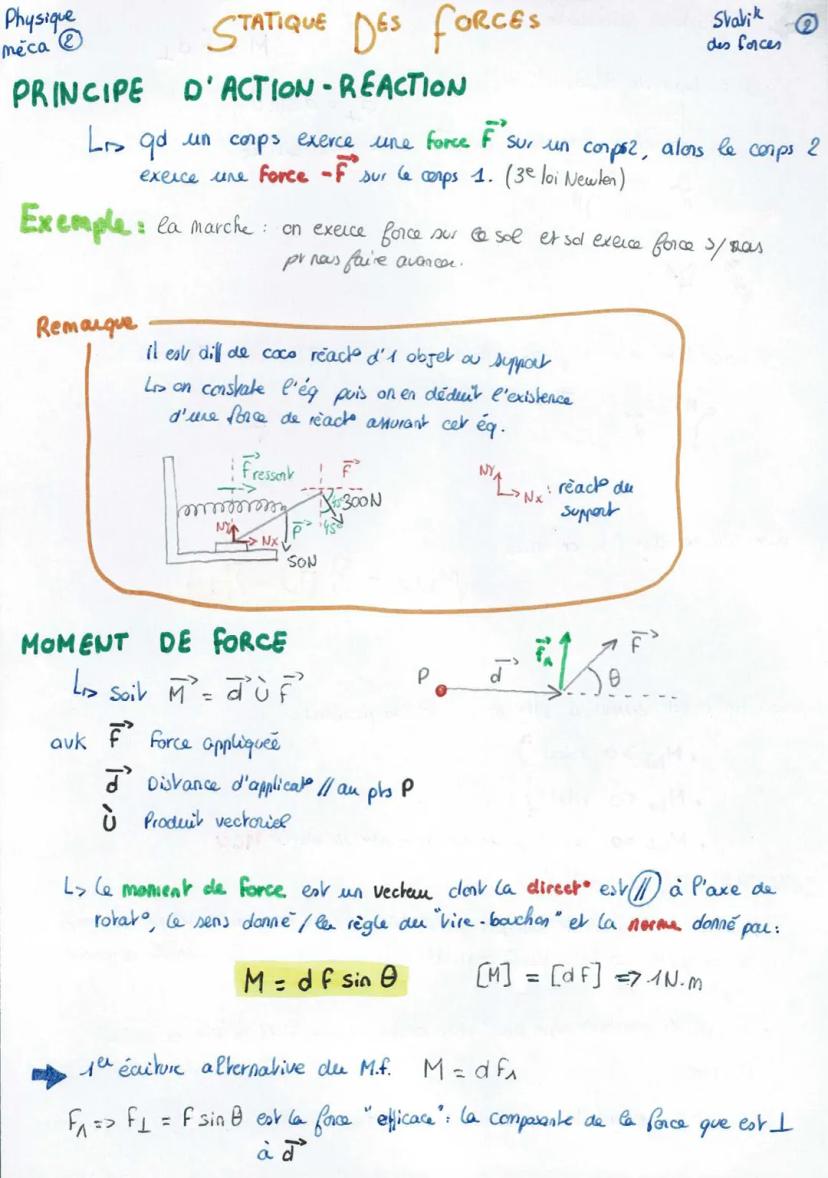 Physique
méca ②
STATIQUE DES FORCES
Statik
des forces
②
PRINCIPE D'ACTION-RÉACTION
↳ qd un corps exerce une force F→ sur un corps 2, alors le corps 2
exerce une force -F→ sur le corps 1. (3e loi Newton)
Exemple : la marche : on exerce force sur le sol et sol exerce force s/ nous
pr nous faire avancer.
Remarque
il est diff de réact° d'1 objet ou support
↳ on constate l'éq puis on en déduit l'existence
d'une force de réact° assurant cet éq.
F→ ressort
F→
300N
45°
P→
Ny
Nx
50N
Ny
Nx : réact° du
support
MOMENT DE FORCE
↳ soit M→ = d→ ù F→
P
d→
F→
θ
avk F→ Force appliquée
d→ Distance d'applicat° // au pts P
ù Produit vectoriel
↳ le moment de force est un vecteur dont la direct° est // à l'axe de
rotat°, le sens donné / la règle du "tire-bouchon" et la norme donné par :
M = d F sin θ
[M] = [d F] => 1 N.m
➡ 1er écriture alternative du M.f. M = d F₁
F₁ => F⊥ = F sin θ est la force "efficace" : la composante de la force que est ⊥
à d→